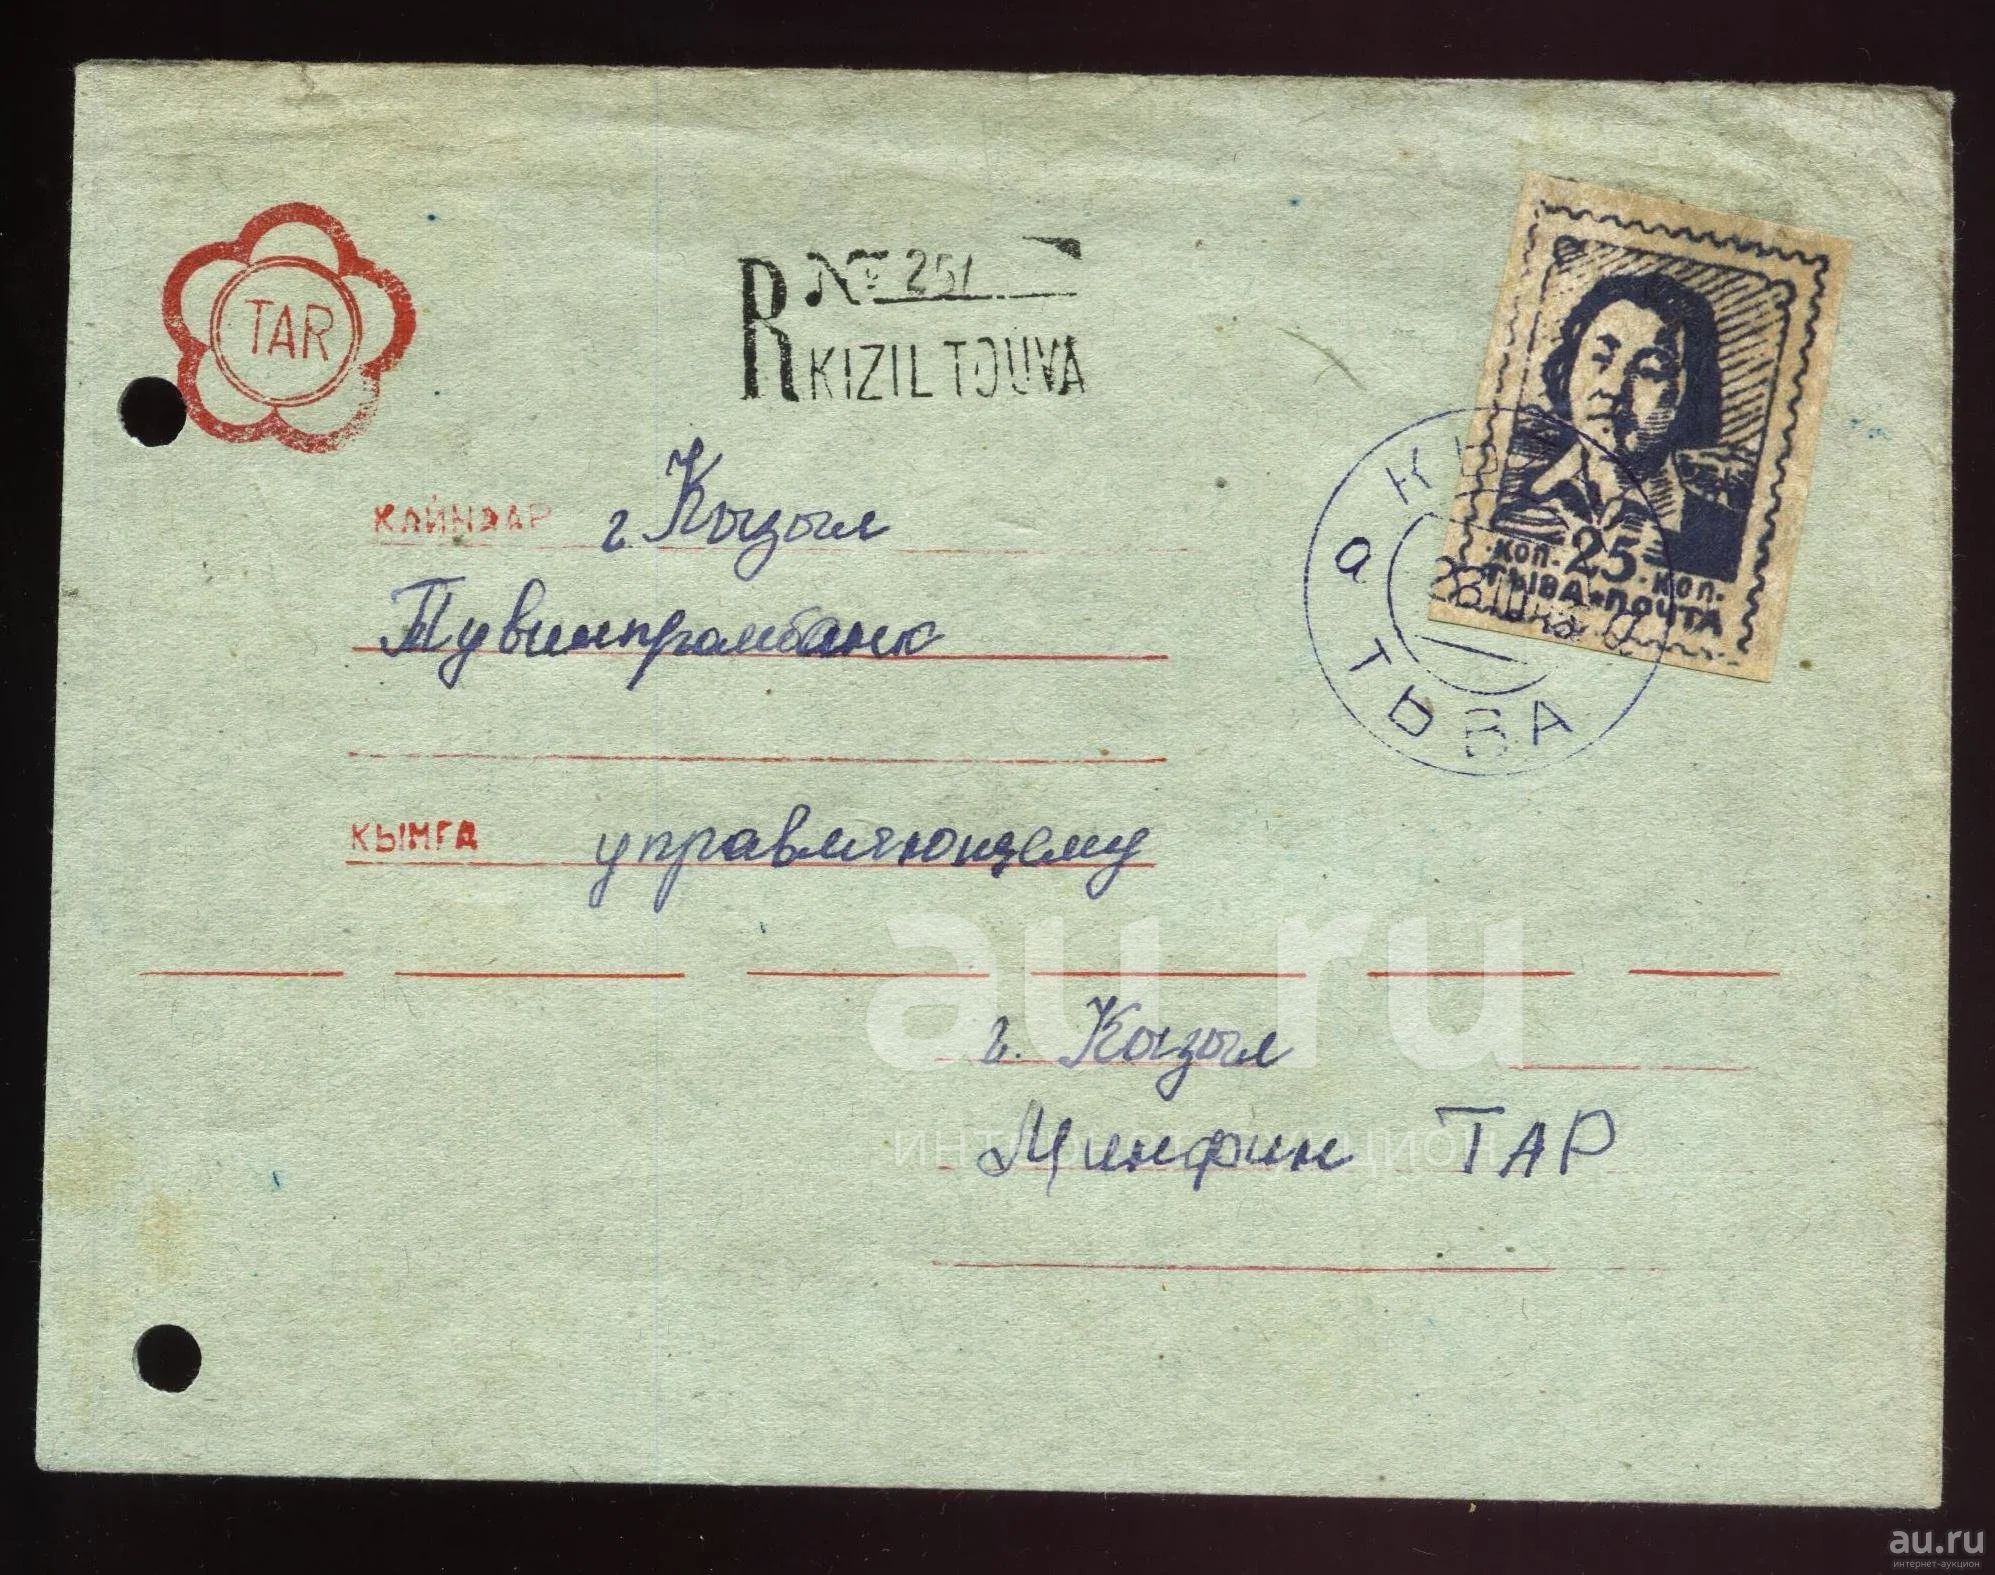 TAR
R № 251
KIZIL TOUVA
КОП. 25 КОП.
ТЫВА ПОЧТА
КЫЗЫЛ
а ТЫВА
КАЙНЭАР г. Кызыл
Тувинпромбанк
КЫМГА управляющему
г. Кызыл
Минфин ТАР
au.ru
интернет-аукцион
au.ru
интернет-аукцион